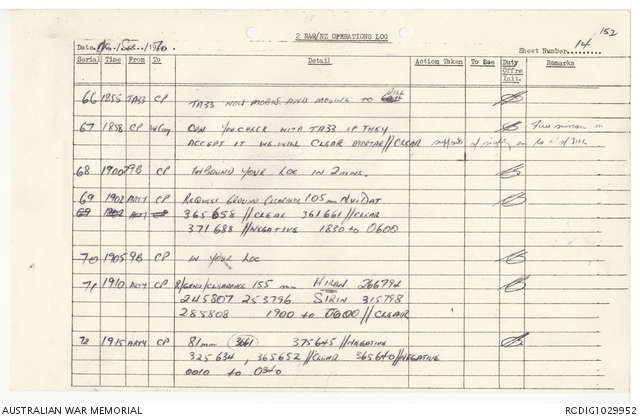 152
2 RAR/NZ OPERATIONS LOG
Date. 16/Feb/1970. Sheet Number 14
Serial Time From To Detail Action Taken To See Duty Offrs Init. Remarks
66 1855 TA33 CP TA33 NOW MOBILE AND MOVING TO
67 1858 CP CAN YOU CHECK WITH TA33 IF THEY
ACCEPT IT WE WILL CLEAR MORTAR//CLEAR
68 1900 9B CP INBOUND YOUR LOC IN 2 MINS.
69 1902 ARTY CP REQUEST GROUND CLEARANCE 105mm NUI DAT
69 1902 365658 //CLEAR 361661 //CLEAR
371688 //NEGATIVE 1830 to 0600
70 1905 9B CP IN YOUR LOC
71 1910 ARTY CP R/GRND/CLEARANCE 155 mm HIRAM 266794
245807 253796 SIRIN 315798
285808 1900 to 0600 //CLEAR
72 1915 ARTY CP 81mm 3661 375645 //NEGATIVE
325634, 365652 //CLEAR 365640 //NEGATIVE
0010 to 0340
AUSTRALIAN WAR MEMORIAL RCDIG1029952